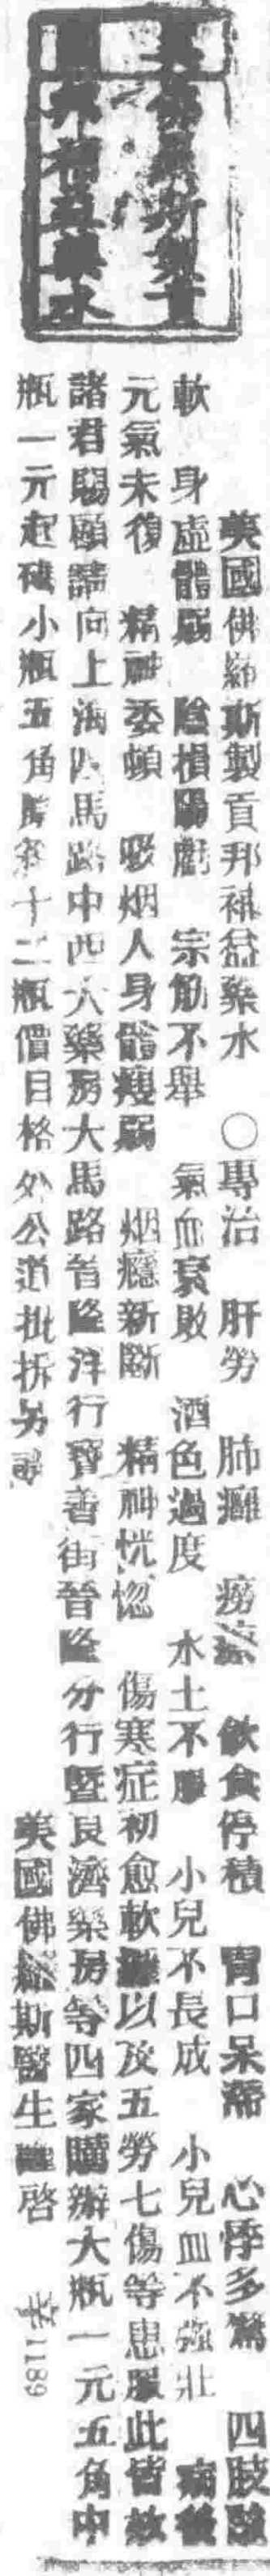 美佛羅斯製貢
邦補益藥水
美國佛羅斯製貢邦補益藥水　〇專治　肝勞　肺癰　癆瘵　飲食停積　胃口呆滯　心悸多驚　四肢酸
軟　身虛體弱　陰損陽虧　宗筋不舉　氣血衰敗　酒色過度　水土不服　小兒不長成　小兒血不強壯　病後
元氣未復　精神委頓　吸烟人身體瘦弱　烟癮新斷　精神恍惚　傷寒症初愈軟以及五勞七傷等患服此皆效
諸君賜顧請向上海四馬路中西大藥房大馬路晉隆洋行寶善街晉隆分行暨良濟藥房等四家購辦大瓶一元五角中
瓶一元起碼小瓶五角十二瓶價目格外公道批拆另議
美國佛羅斯醫生謹啓　辛1189